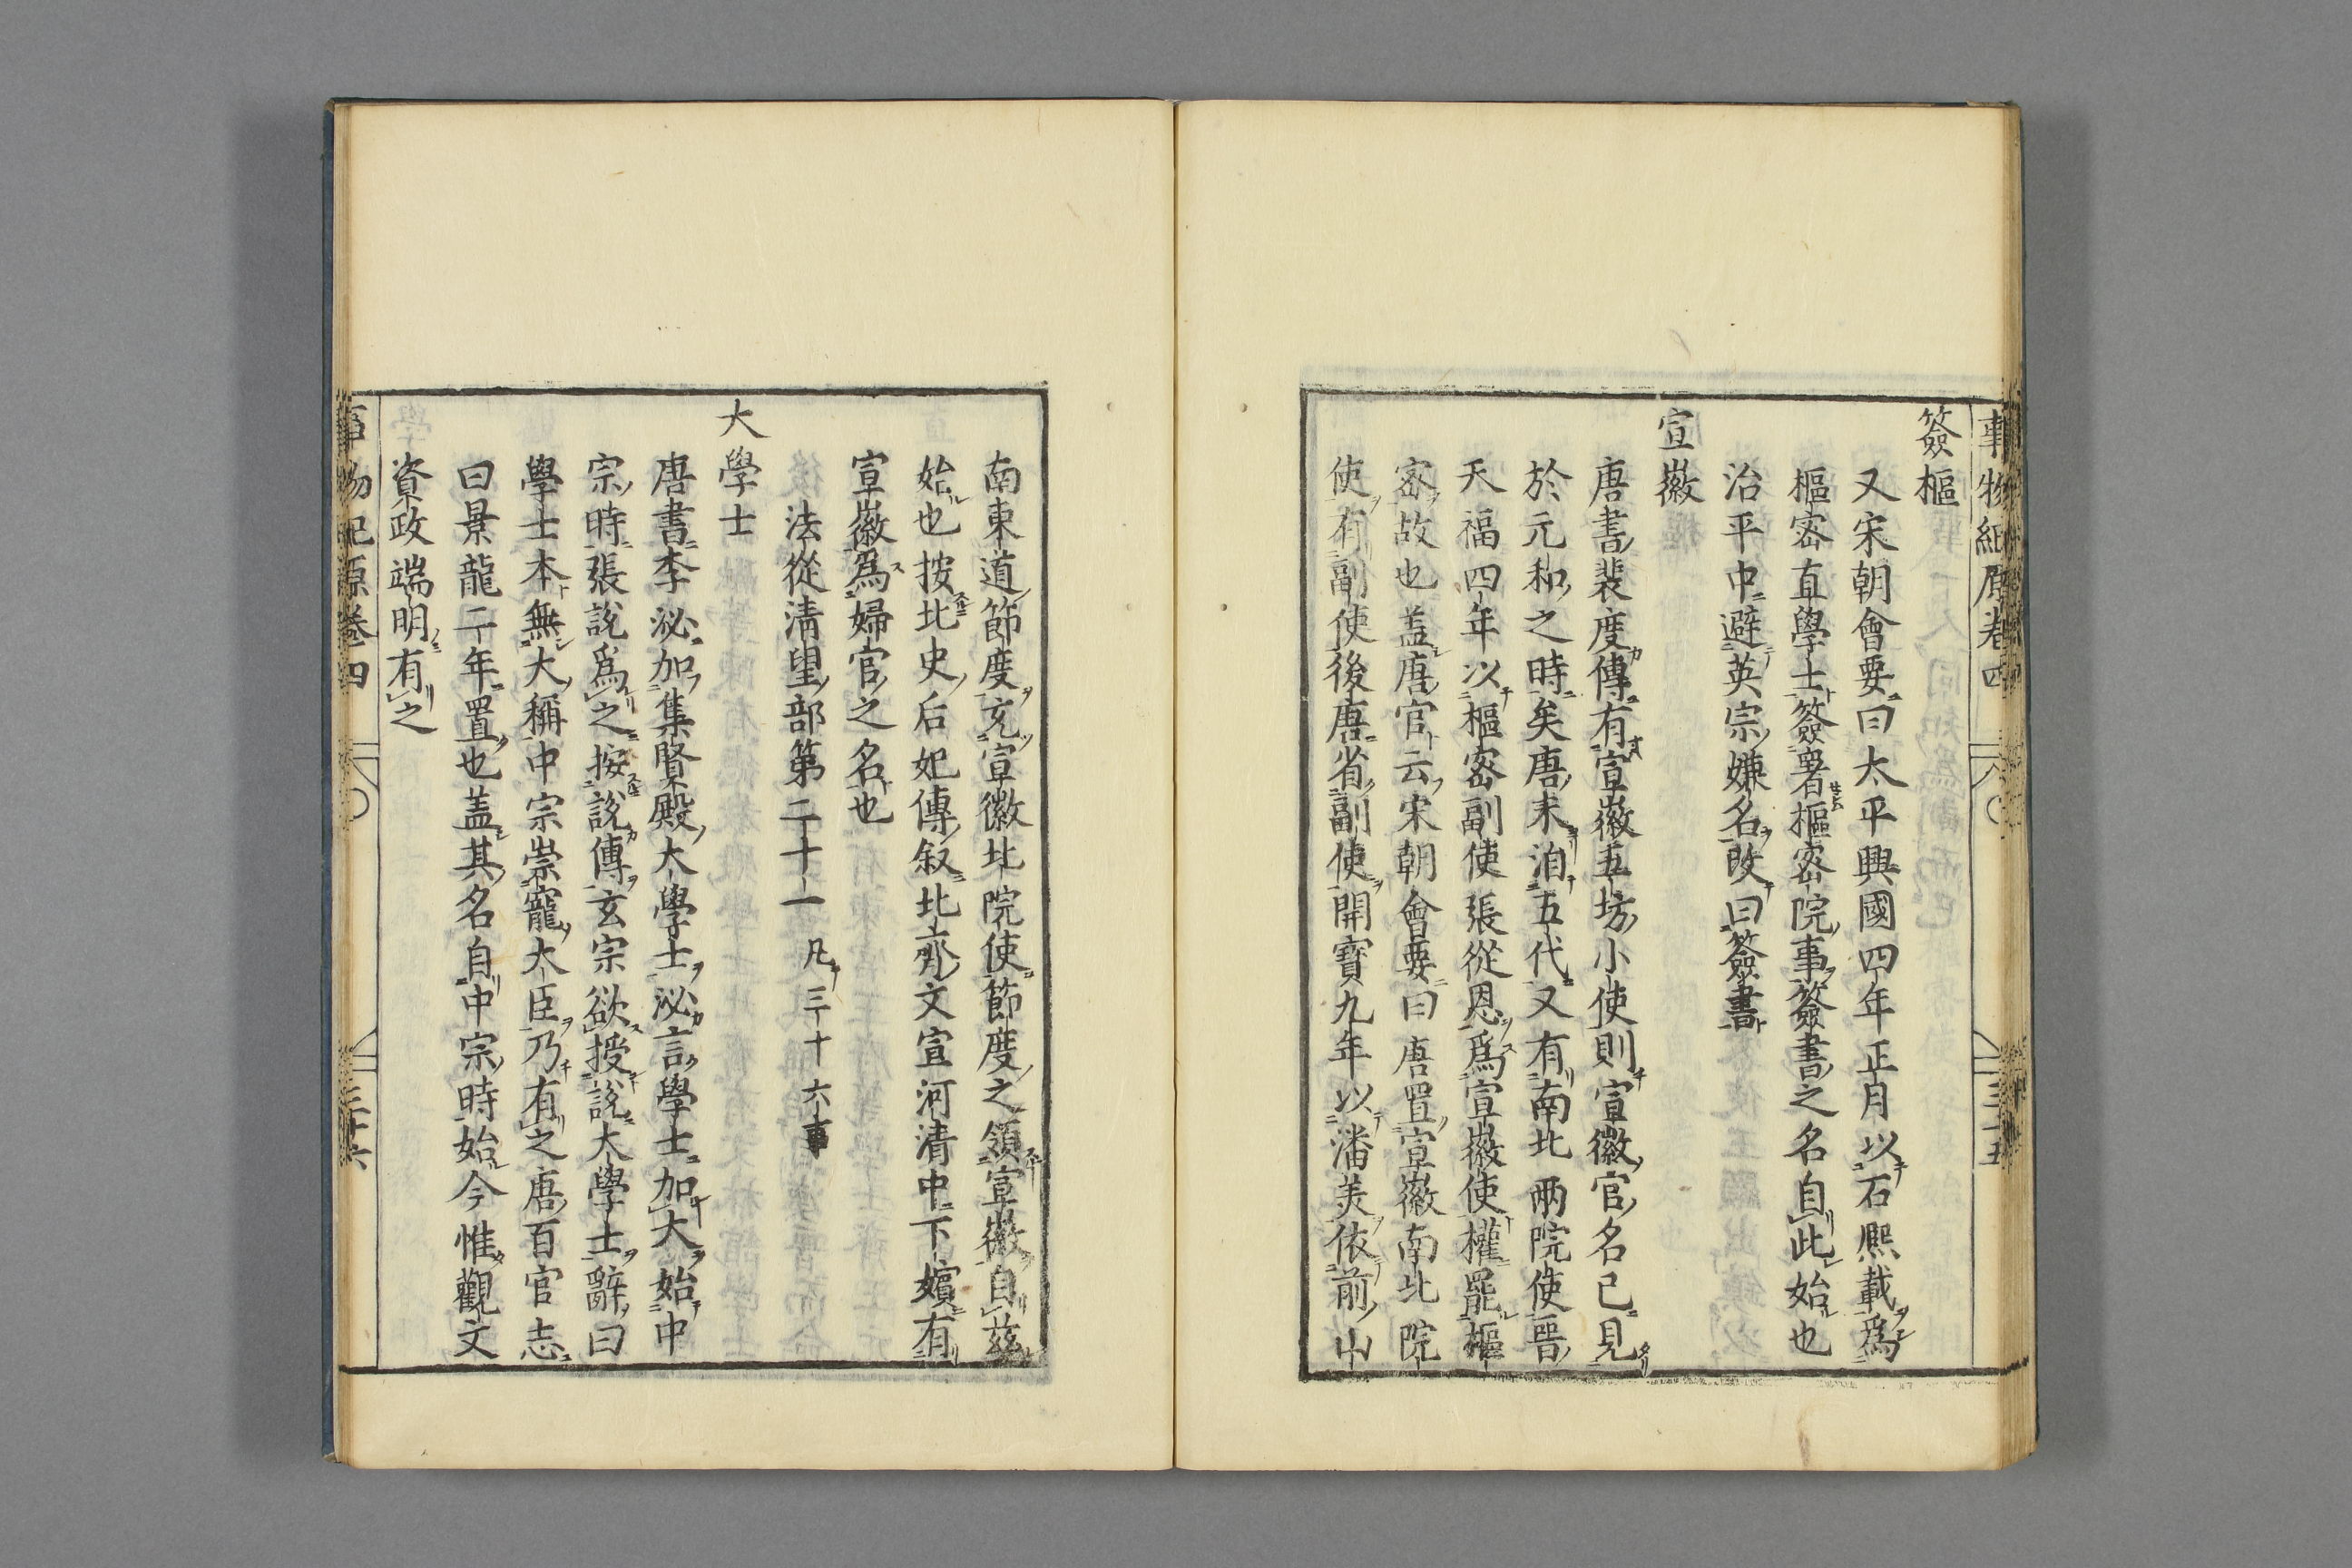 事物紀原卷四
三十五
簽樞
又宋朝會要曰太平興國四年正月以石熈載爲
樞宻直學士簽署樞宻院事簽書之名自此始也
治平中避英宗嫌名改曰簽書
宣徽
唐書裴度傳有宣徽五坊小使則宣徽官名已見
於元和之時矣唐末洎五代又有南北兩院使晉
天福四年以樞宻副使張從恩爲宣徽使權罷樞
宻故也盖唐官云宋朝會要曰唐置宣徽南北院
使有副使後唐省副使開寶九年以潘美依前山
南東道節度充宣徽北院使節度之領宣徽自茲
始也按北史后妃傳叙北齊文宣河清中下嬪有
宣徽爲婦官之名也
法從清望部第二十一 凡三十六事
大學士
唐書李泌加集賢殿大學士泌言學士加大始中
宗時張說爲之按說傳玄宗欲授說大學士辭曰
學士本無大稱中宗崇寵大臣乃有之唐百官志
曰景龍二年置也盖其名自中宗時始今惟觀文
資政端明有之
事物紀原卷四
三十六